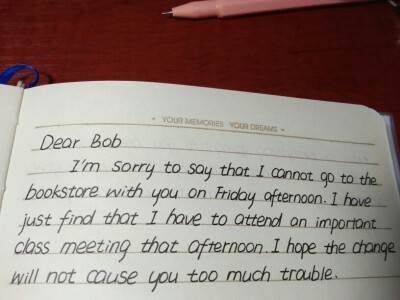 • YOUR MEMORIES YOUR DREAMS •
Dear Bob
I'm sorry to say that I cannot go to the
bookstore with you on Friday afternoon. I have
just find that I have to attend an important
class meeting that afternoon. I hope the change
will not cause you too much trouble.